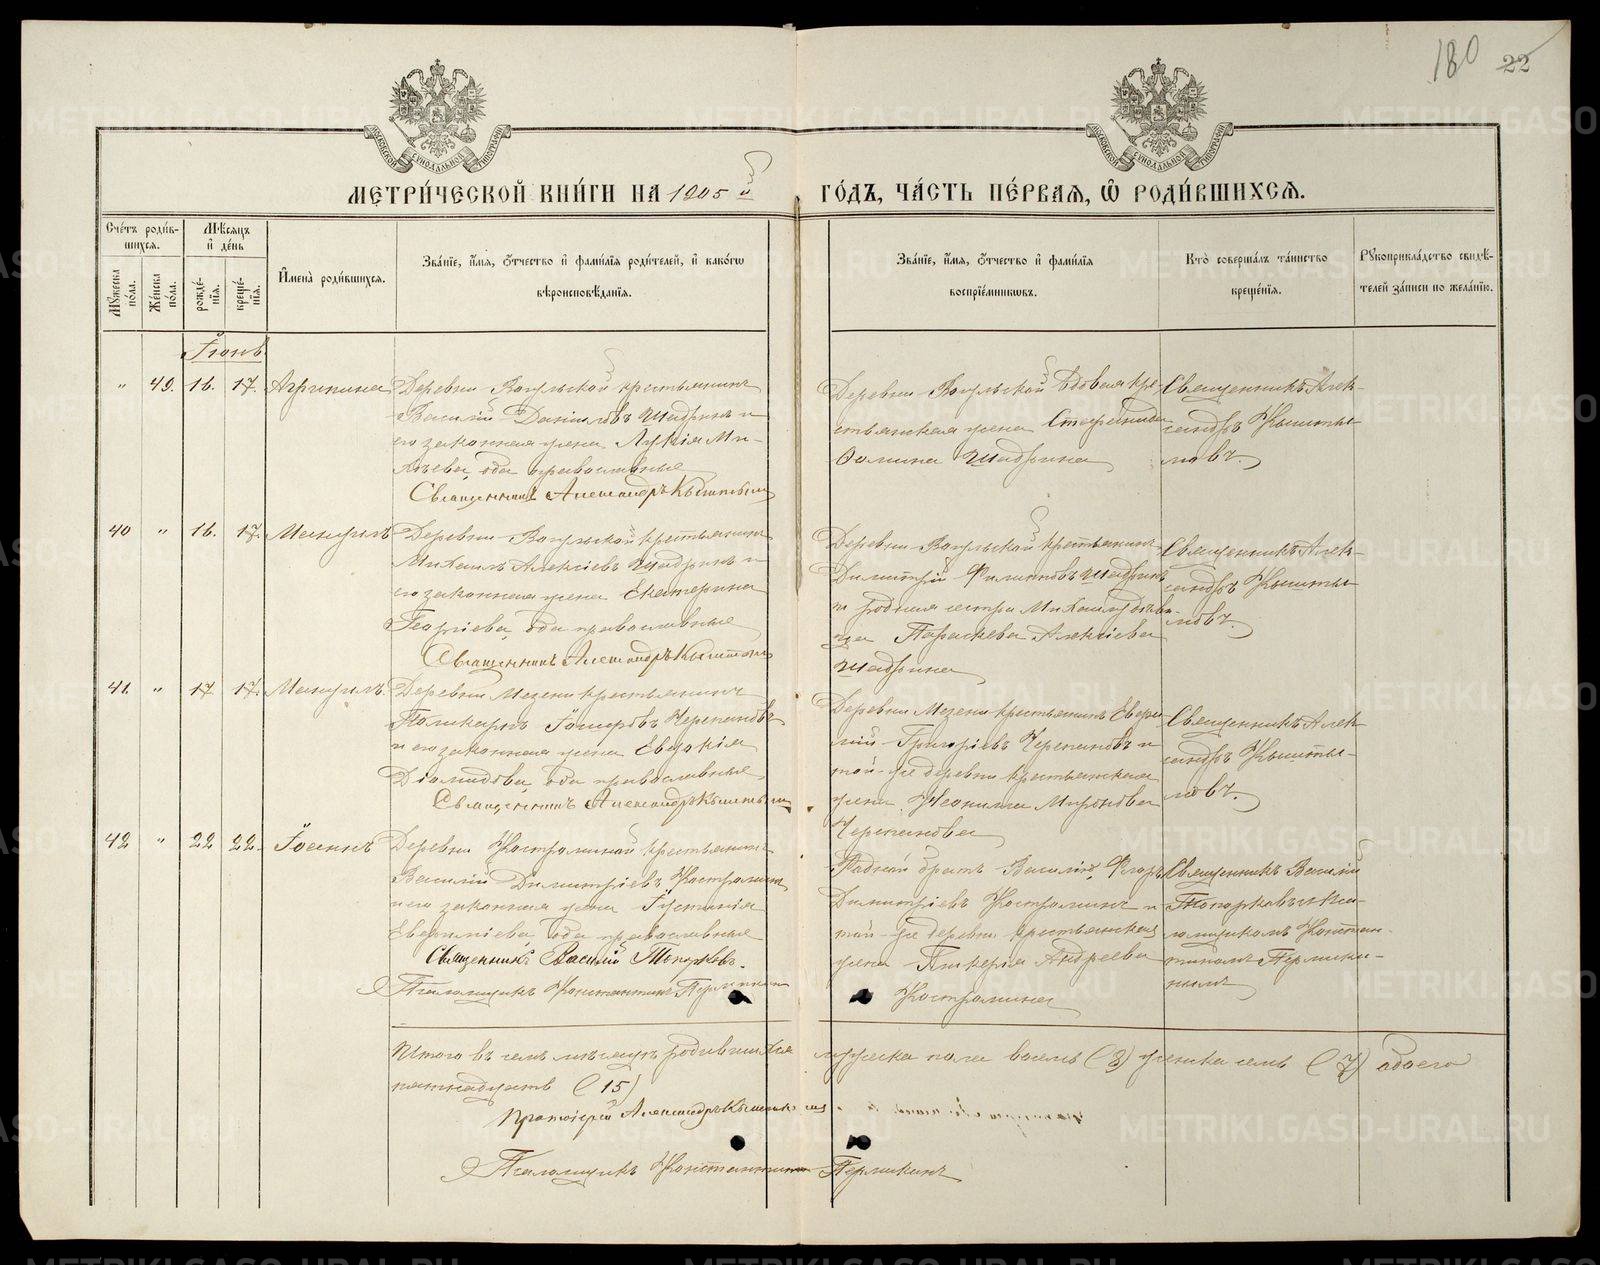 180 22
МОСКОВСКОЙ СѴНОДАЛЬНОЙ ТИПОГРАФІИ
МОСКОВСКОЙ СѴНОДАЛЬНОЙ ТИПОГРАФІИ
МЕТРИ́ЧЕСКОЙ КНИ́ГИ НА 1905й ГО́ДЪ, ЧА́СТЬ ПЕ́РВАЯ, Ѡ РОДИ́ВШИХСЯ.
Сче́тъ роди́в-
шихся.
Мꙋ́жеска по́ла.
Же́нска по́ла.
Мѣ́сяцъ
и҆ де́нь
рожде́-
нїя.
креще́-
нїя.
И҆мена̀ роди́вшихся.
Зва́нїе, и҆́мя, ѻ҆́тчество и҆ фами́лїя роди́телей, и҆ како́гѡ
вѣроисповѣ́данїя.
Зва́нїе, и҆́мя, ѻ҆́тчество и҆ фами́лїя
воспрїе́мникѡвъ.
Кто̀ соверша́лъ та́инство
креще́нїя.
Рꙋкоприкла́дство свидѣ́-
телей за́писи по жела́нїю.
Іюнь
" 49. 16. 17. Агрипина
Деревни Вогульской крестьянинъ
Василій Даніиловъ Шадринъ и
его законная жена Лукія Ми-
оба православные
Священникъ Александръ Кыштымовъ
Деревни Вогульской вдовая кре-
стьянская жена Стефанида
Фомина Шадрина
Священникъ Алек-
сандръ Кышты-
мовъ.
40 " 16. 17. Мануилъ
Деревни Вогульской крестьянинъ
Михаилъ Алексіевъ Шадринъ и
его законная жена Екатерина
Георгіева, оба православные
Священникъ Александръ Кыштымовъ
Деревни Вогульской крестьянинъ
Димитрій Филипповъ Шадринъ
и родная сестра Михаила дѣви-
ца Параскева Алексіева
Шадрина
Священникъ Алек-
сандръ Кышты-
мовъ.
41. " 17. 17. Мануилъ
Деревни Мезени крестьянинъ
Поликарпъ Черепановъ
и его законная жена Евдокія
Діомидова, оба православные
Священникъ Александръ Кыштымовъ
Деревни Мезени крестьянинъ Евѳи-
мій Григоріевъ Черепановъ и
той-же деревни крестьянская
жена Неонила Миронова
Черепанова
Священникъ Алек-
сандръ Кышты-
мовъ.
42 " 22 22. Іоаннъ
Деревни Костроминой крестьянинъ
Василій Димитріевъ Костроминъ
и его законная жена Іустинія
Евѳиміева, оба православные
Священникъ Василій Топорковъ.
Псаломщикъ Константинъ Пермикинъ
Родной братъ Василія, Флоръ
Димитріевъ Костроминъ и
той-же деревни крестьянская
жена Гликерія Андреева
Костромина
Священникъ Василій
Топорковъ съ пса-
ломщикомъ Констан-
тиномъ Пермики-
нымъ
Итого въ семъ мѣсяцѣ родившихся мужеска пола восемь (8) женска семь (7) обоего
пятнадцать (15)
Протоіерей Александръ Кыштымовъ
Псаломщикъ Константинъ Пермикинъ
METRIKI.GASO-URAL.RU